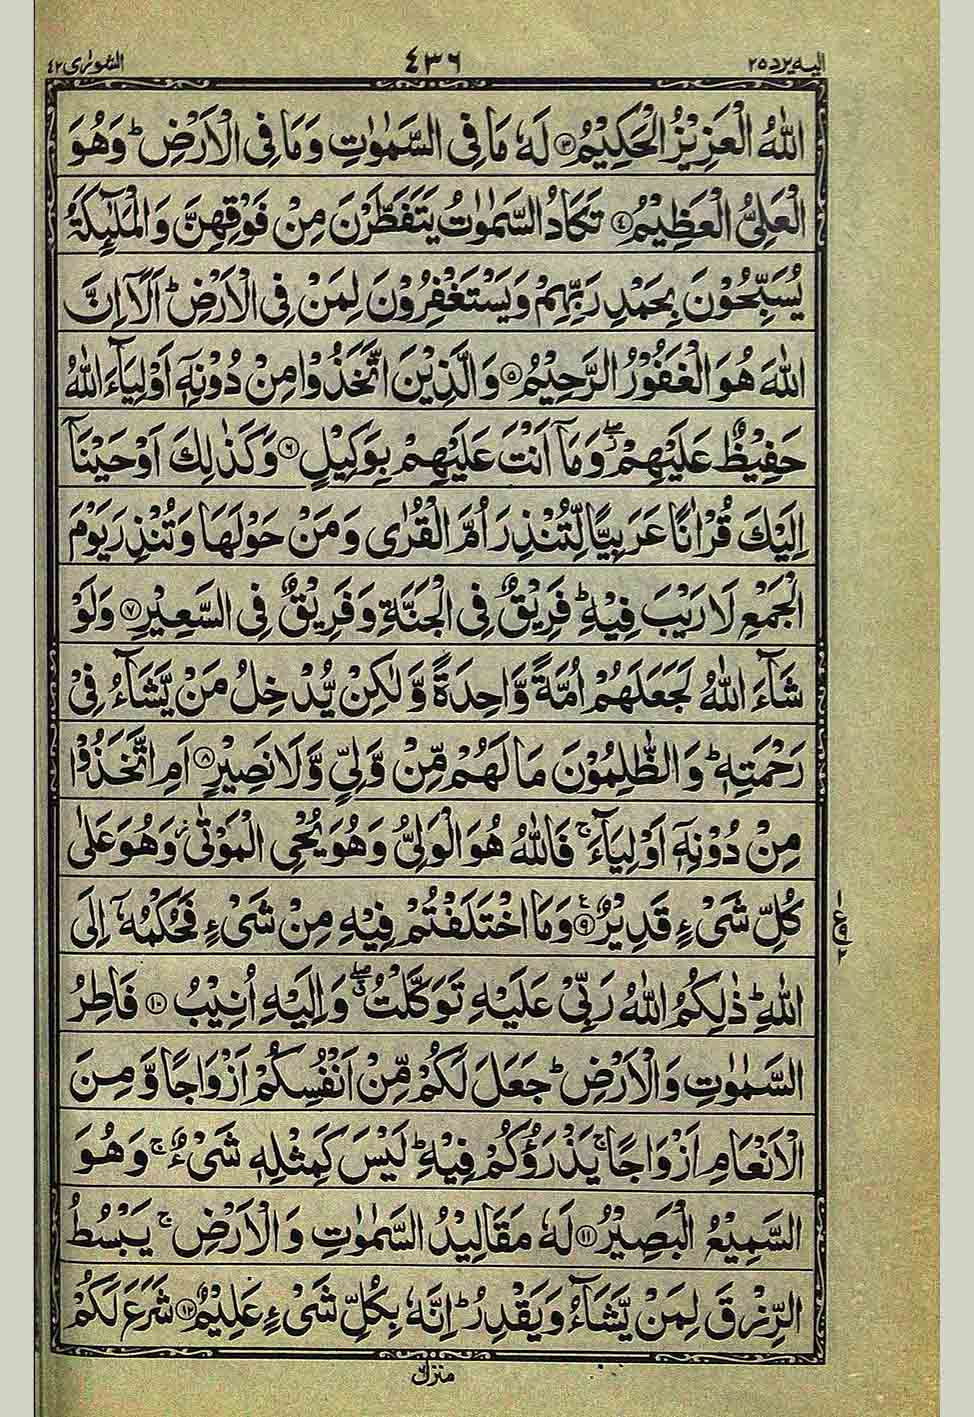 اليه يرد ٢٥ ٤٣٦ الشورٰى ٤٢
اللّٰهُ الْعَزِيْزُ الْحَكِيْمُ ۝٣ لَهٗ مَا فِى السَّمٰوٰتِ وَمَا فِى الْاَرْضِ ؕ وَهُوَ
الْعَلِىُّ الْعَظِيْمُ ۝٤ تَكَادُ السَّمٰوٰتُ يَتَفَطَّرْنَ مِنْ فَوْقِهِنَّ وَالْمَلٰٓئِكَةُ
يُسَبِّحُوْنَ بِحَمْدِ رَبِّهِمْ وَيَسْتَغْفِرُوْنَ لِمَنْ فِى الْاَرْضِ ؕ اَلَاۤ اِنَّ
اللّٰهَ هُوَ الْغَفُوْرُ الرَّحِيْمُ ۝٥ وَالَّذِيْنَ اتَّخَذُوْا مِنْ دُوْنِهٖۤ اَوْلِيَآءَ اللّٰهُ
حَفِيْظٌ عَلَيْهِمْ ۖ وَمَاۤ اَنْتَ عَلَيْهِمْ بِوَكِيْلٍ ۝٦ وَكَذٰلِكَ اَوْحَيْنَاۤ
اِلَيْكَ قُرْاٰنًا عَرَبِيًّا لِّتُنْذِرَ اُمَّ الْقُرٰى وَمَنْ حَوْلَهَا وَتُنْذِرَ يَوْمَ
الْجَمْعِ لَا رَيْبَ فِيْهِ ؕ فَرِيْقٌ فِى الْجَنَّةِ وَفَرِيْقٌ فِى السَّعِيْرِ ۝٧ وَلَوْ
شَآءَ اللّٰهُ لَجَعَلَهُمْ اُمَّةً وَّاحِدَةً وَّلٰكِنْ يُّدْخِلُ مَنْ يَّشَآءُ فِىْ
رَحْمَتِهٖ ؕ وَالظّٰلِمُوْنَ مَا لَهُمْ مِّنْ وَّلِىٍّ وَّلَا نَصِيْرٍ ۝٨ اَمِ اتَّخَذُوْا
مِنْ دُوْنِهٖۤ اَوْلِيَآءَ ۚ فَاللّٰهُ هُوَ الْوَلِىُّ وَهُوَ يُحْىِ الْمَوْتٰى ز وَهُوَ عَلٰى
كُلِّ شَىْءٍ قَدِيْرٌ ۝٩ وَمَا اخْتَلَفْتُمْ فِيْهِ مِنْ شَىْءٍ فَحُكْمُهٗۤ اِلَى
اللّٰهِ ؕ ذٰلِكُمُ اللّٰهُ رَبِّىْ عَلَيْهِ تَوَكَّلْتُ ۖ وَاِلَيْهِ اُنِيْبُ ۝١٠ فَاطِرُ
السَّمٰوٰتِ وَالْاَرْضِ ؕ جَعَلَ لَكُمْ مِّنْ اَنْفُسِكُمْ اَزْوَاجًا وَّمِنَ
الْاَنْعَامِ اَزْوَاجًا ۚ يَذْرَؤُكُمْ فِيْهِ ؕ لَيْسَ كَمِثْلِهٖ شَىْءٌ ۚ وَهُوَ
السَّمِيْعُ الْبَصِيْرُ ۝١١ لَهٗ مَقَالِيْدُ السَّمٰوٰتِ وَالْاَرْضِ ۚ يَبْسُطُ
الرِّزْقَ لِمَنْ يَّشَآءُ وَيَقْدِرُ ؕ اِنَّهٗ بِكُلِّ شَىْءٍ عَلِيْمٌ ۝١٢ شَرَعَ لَكُمْ